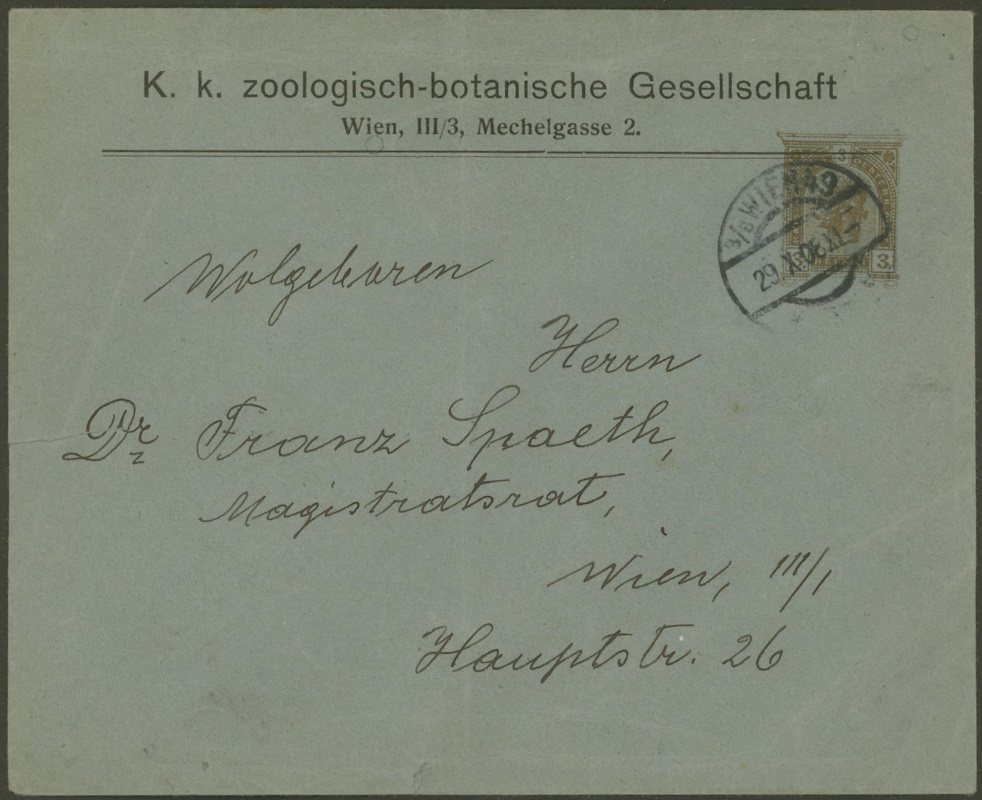 K. k. zoologisch-botanische Gesellschaft
Wien, III/3, Mechelgasse 2.
3
3
3/8 WIEN 49
29.X.08.XI-
Wolgeboren
Herrn
Dr Franz Spaeth,
Magistratsrat,
Wien, III/1
Hauptstr. 26